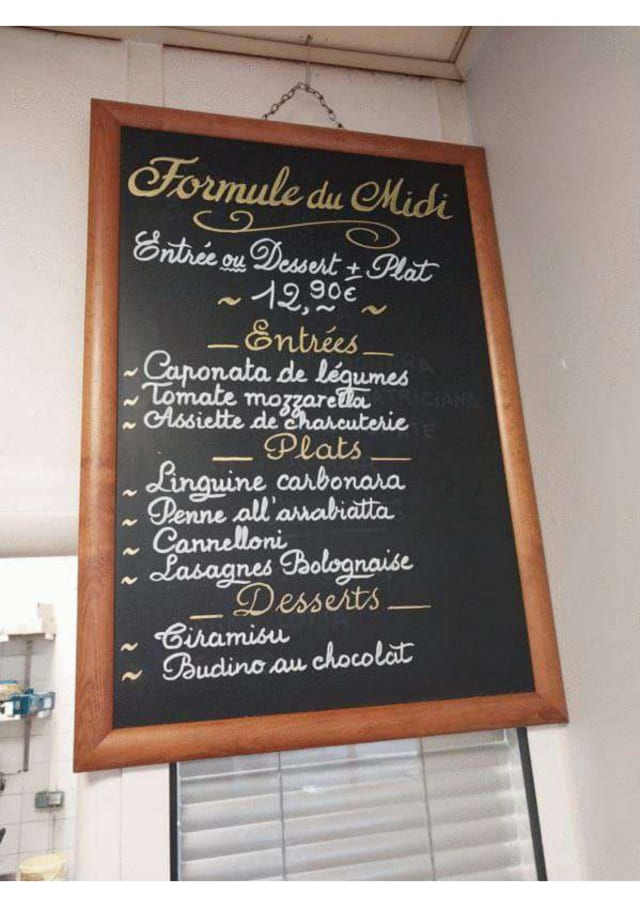 Formule du Midi
Entrée ou Dessert + Plat
~ 12,90€ ~
_ Entrées _
~ Caponata de légumes
~ Tomate mozzarella
~ Assiette de charcuterie
_ Plats _
~ Linguine carbonara
~ Penne all'arrabiatta
~ Cannelloni
~ Lasagnes Bolognaise
_ Desserts _
~ Tiramisu
~ Budino au chocolat